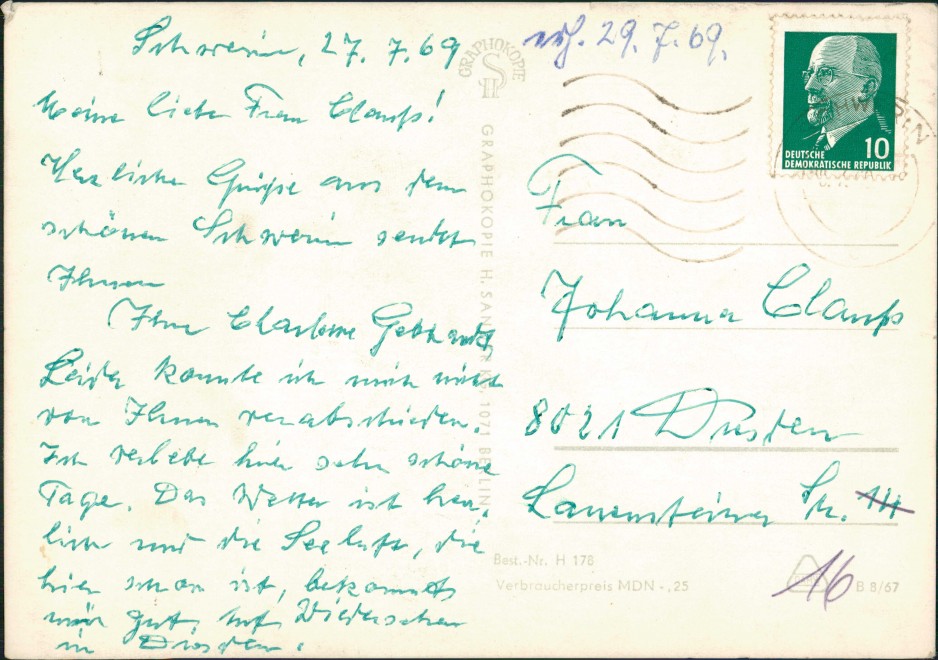 Schwerin, 27. 7. 69
Meine liebe Frau Clauß!
Herzliche Grüße aus dem
schönen Schwerin sendet
Ihnen
Ihre Charlotte Gebhardt
Leider konnte ich mich nicht
von Ihnen verabschieden.
Ich verlebe hier sehr schöne
Tage. Das Wetter ist herr-
lich und die Seeluft, die
hier schon ist, bekommt
mir gut. Auf Wiedersehen
in Dresden.
29. 7. 69.
GRAPHOKOPIE
H
S
GRAPHOKOPIE H. SANDER KG, 1071 BERLIN
DEUTSCHE
DEMOKRATISCHE REPUBLIK
10
Frau
Johanna Clauß
8021 Dresden
Lauensteiner Str.
16
Best.-Nr. H 178
Verbraucherpreis MDN -,25
B 8/67